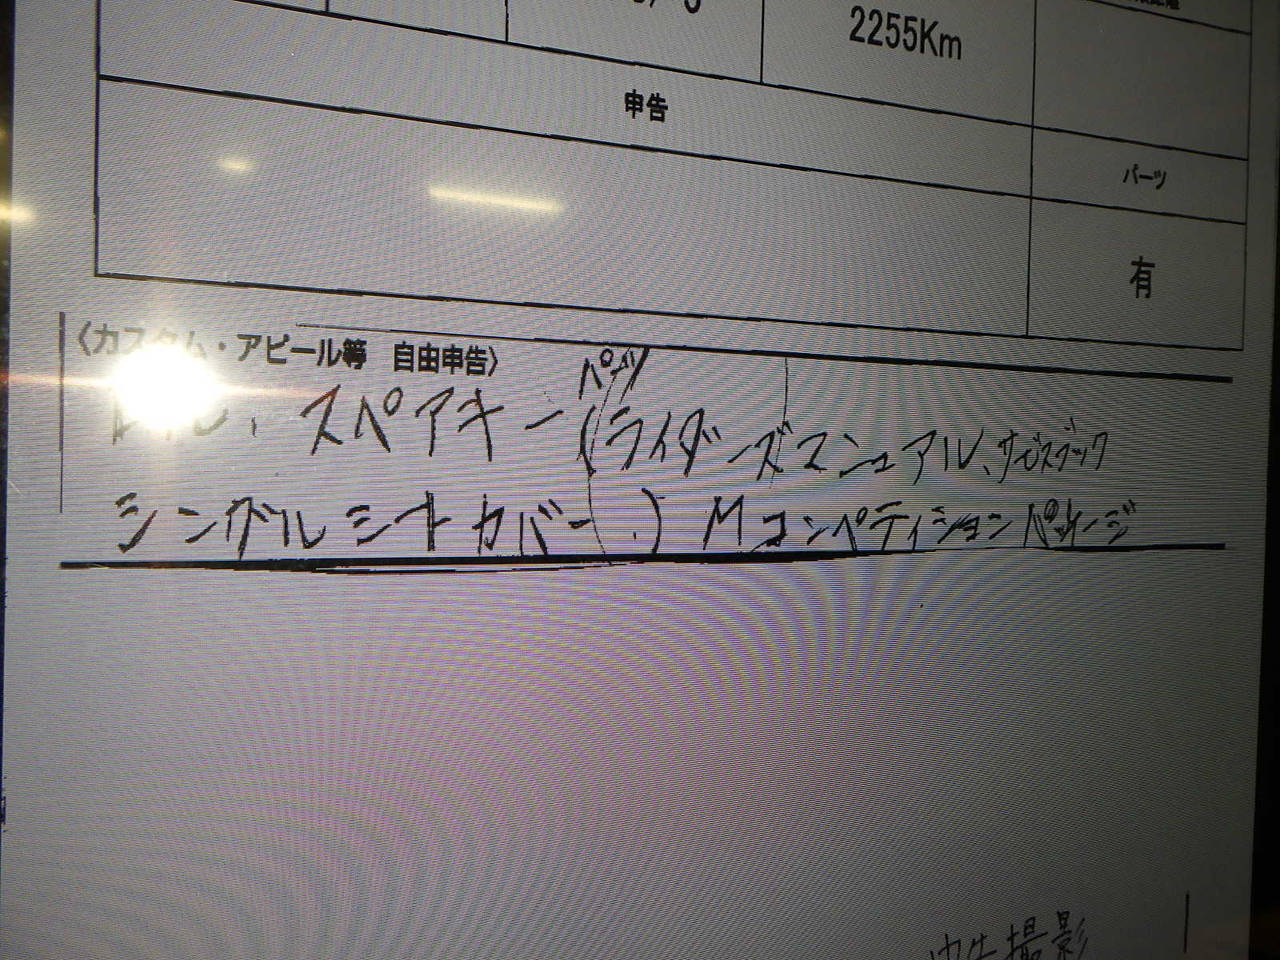 2255Km
申告
パーツ
有
〈カスタム・アピール等 自由申告〉
パーツ
スペアキー(ライダーズマニュアル、サービスブック
シングルシートカバー) Mコンペティションパッケージ
撮影